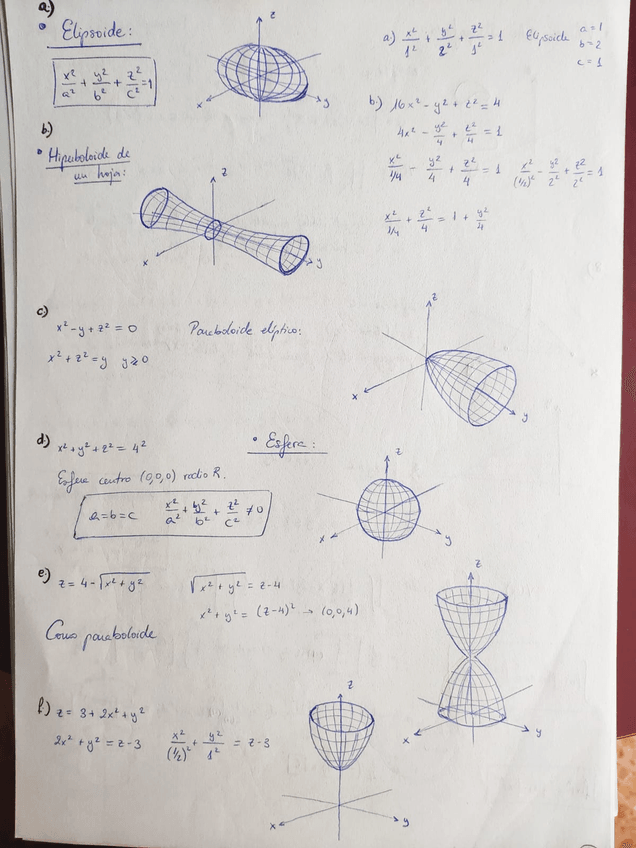 a)
• Elipsoide:
x²/a² + y²/b² + z²/c² = 1
z
x
y
a) x²/1² + y²/2² + z²/1² = 1 Elipsoide a = 1
b = 2
c = 1
b)
• Hiperboloide de
un hoja:
z
x
y
b) 16x² - y² + z² = 4
4x² - y²/4 + z²/4 = 1
x²/1/4 - y²/4 + z²/4 = 1 x²/(1/2)² - y²/2² + z²/2² = 1
x²/1/4 + z²/4 = 1 + y²/4
c)
x² - y + z² = 0 Paraboloide elíptico:
x² + z² = y y ≥ 0
z
x
y
d) x² + y² + z² = 4² • Esfera:
Esfera centro (0,0,0) radio R.
a = b = c x²/a² + y²/b² + z²/c² ≠ 0
z
x
y
e) z = 4 - √x² + y² √x² + y² = z - 4
x² + y² = (z-4)² → (0,0,4)
Como paraboloide
z
x
y
f) z = 3 + 2x² + y²
2x² + y² = z - 3 x²/(1/2)² + y²/1² = z - 3
z
x
y